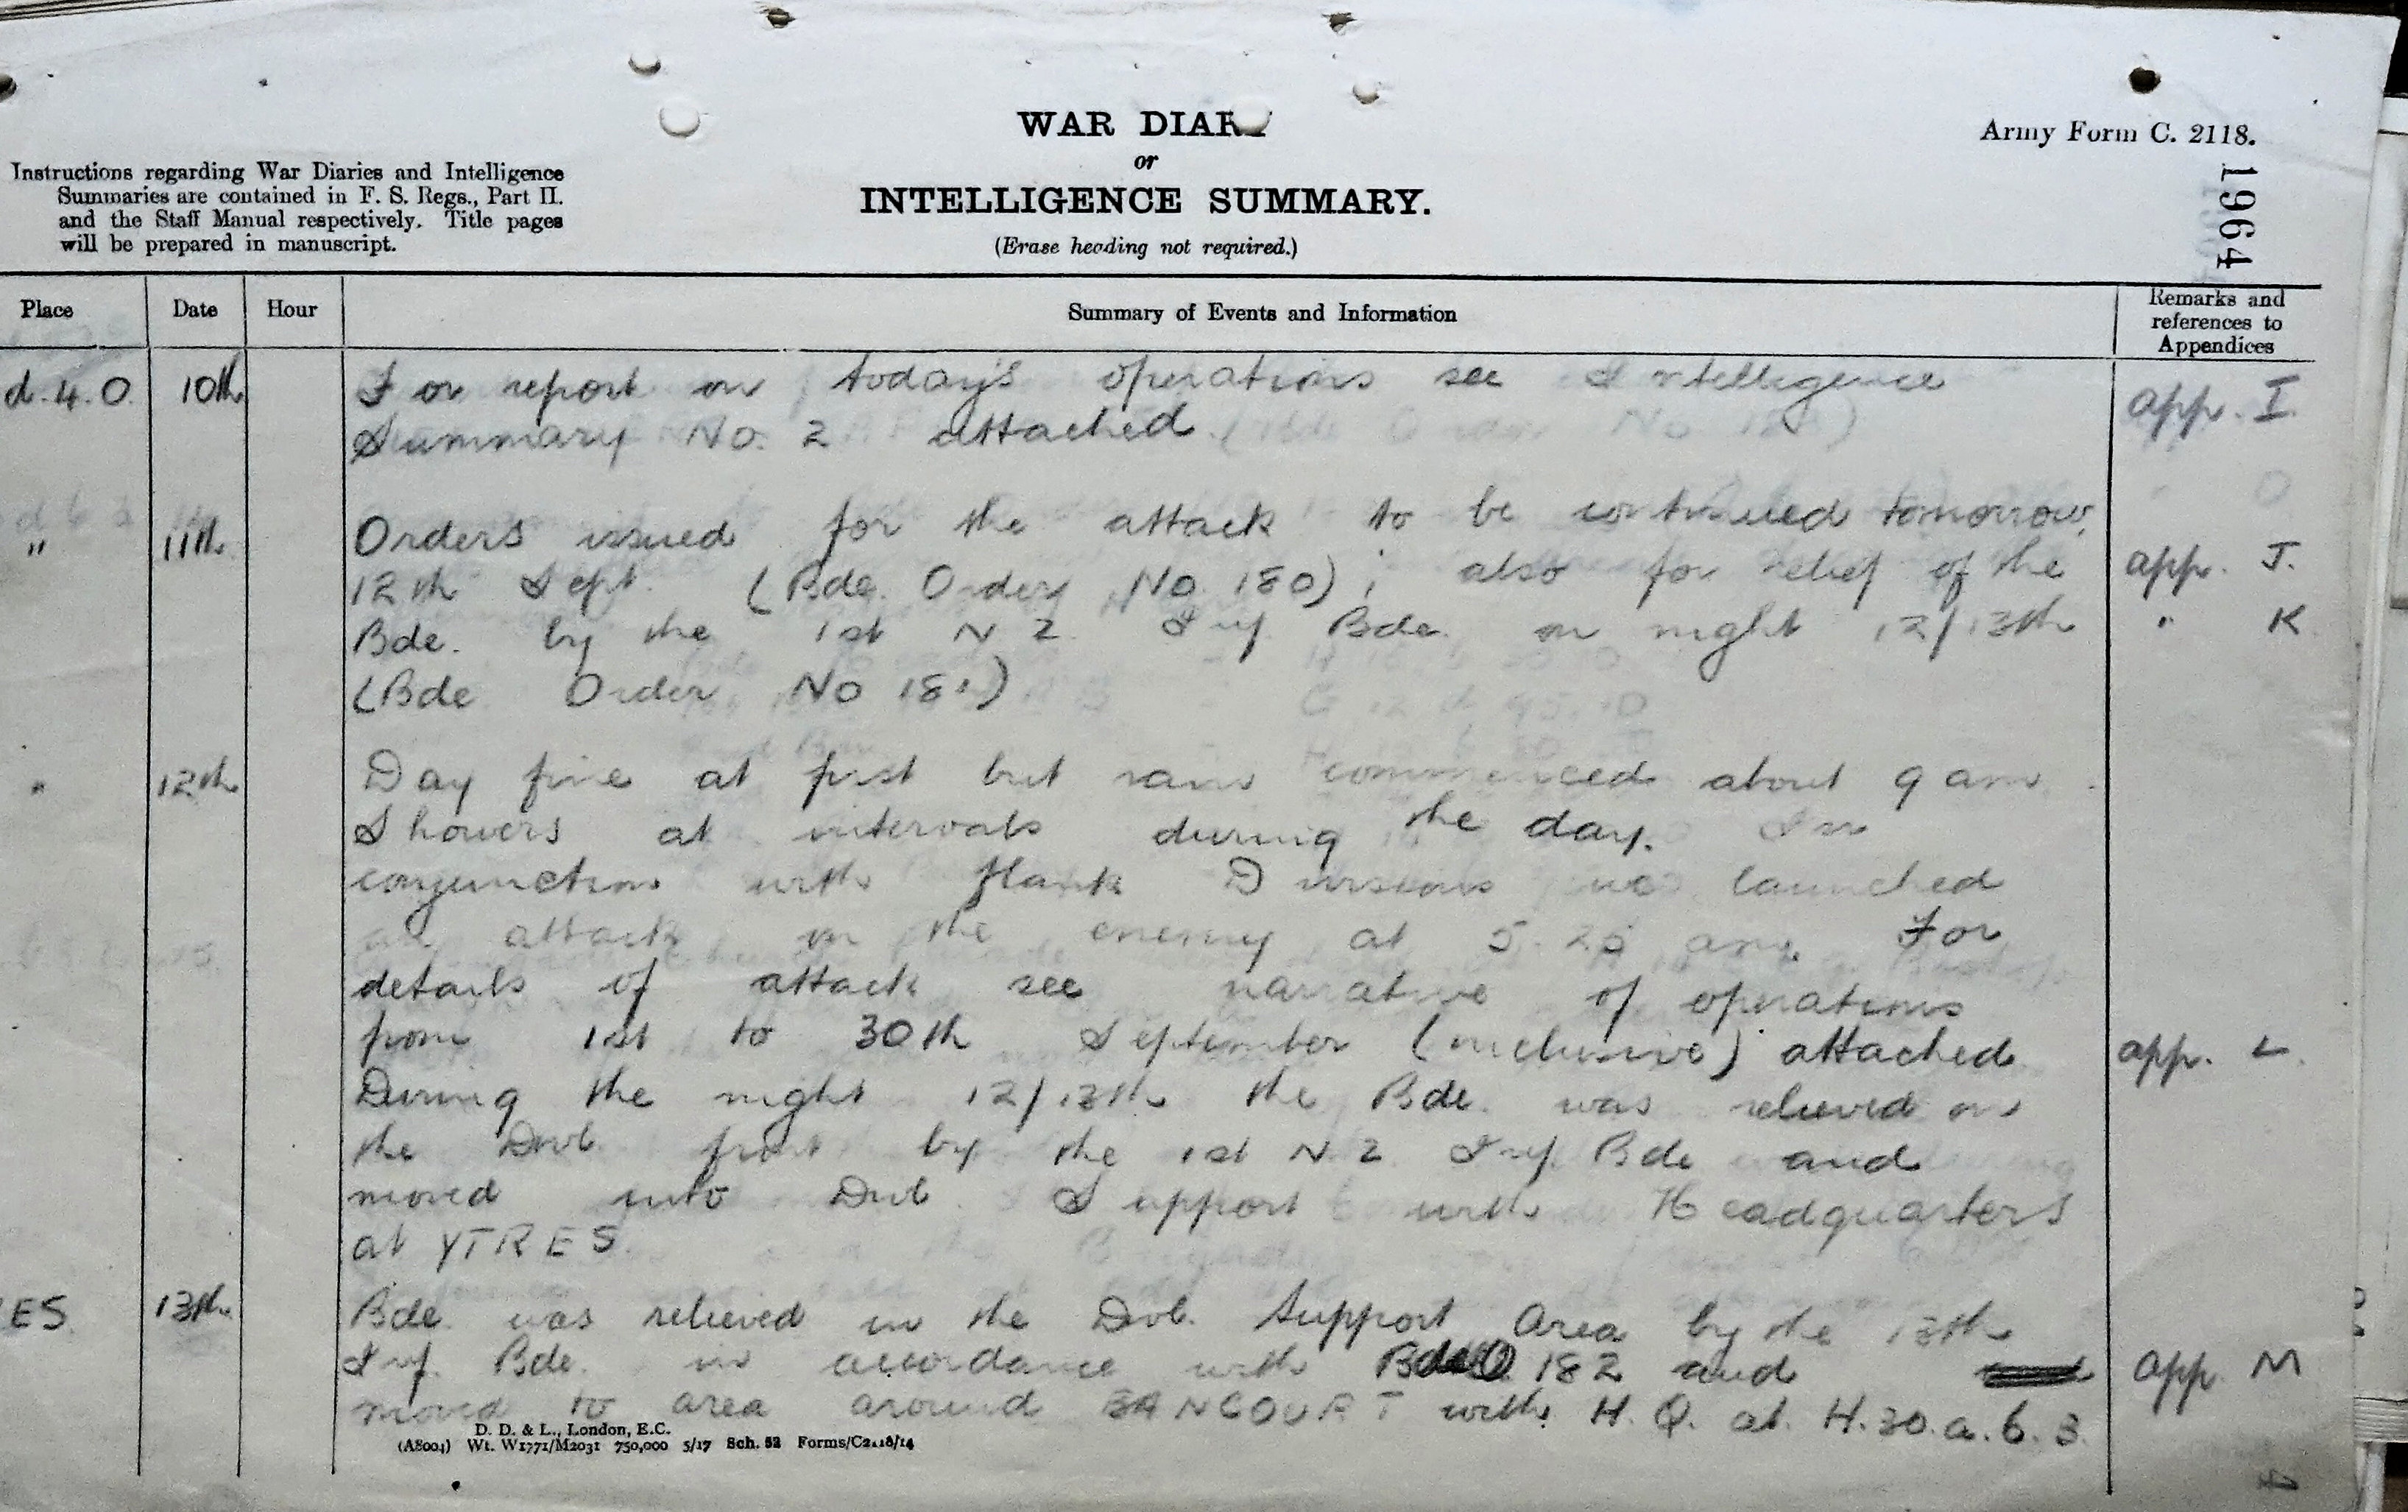 WAR DIARY
or
INTELLIGENCE SUMMARY.
(Erase heading not required.)
Army Form C. 2118.
1964
Instructions regarding War Diaries and Intelligence
Summaries are contained in F. S. Regs., Part II.
and the Staff Manual respectively. Title pages
will be prepared in manuscript.
Place Date Hour Summary of Events and Information Remarks and references to Appendices
d.4.0. 10th For report on today's operations see Intelligence app. I.
Summary No. 2 attached.
" 11th Orders issued for the attack to be continued tomorrow,
12th Sept. (Bde. Order No 180); also for relief of the app. J.
Bde. by the 1st N Z Inf Bde. on night 12/13th " K
(Bde Order No 181)
" 12th Day fine at first but rain commenced about 9 am.
Showers at intervals during the day. In
conjunction with flank Divisions we launched
an attack on the enemy at 5.25 am. For
details of attack see narrative of operations
from 1st to 30th September (inclusive) attached app. L.
During the night 12/13th the Bde. was relieved on
the Divl. front by the 1st N Z Inf. Bde and
moved into Divl. Support with Headquarters
at YTRES.
ES 13th Bde. was relieved in the Divl. Support Area by the 13th
Inf. Bde. in accordance with BdeO 182 and app M
moved to area around BANCOURT with H.Q. at H.30.a.6.3.
D. D. & L., London, E.C.
(A8004) Wt. W1771/M2031 750,000 5/17 Sch. 52 Forms/C2118/14